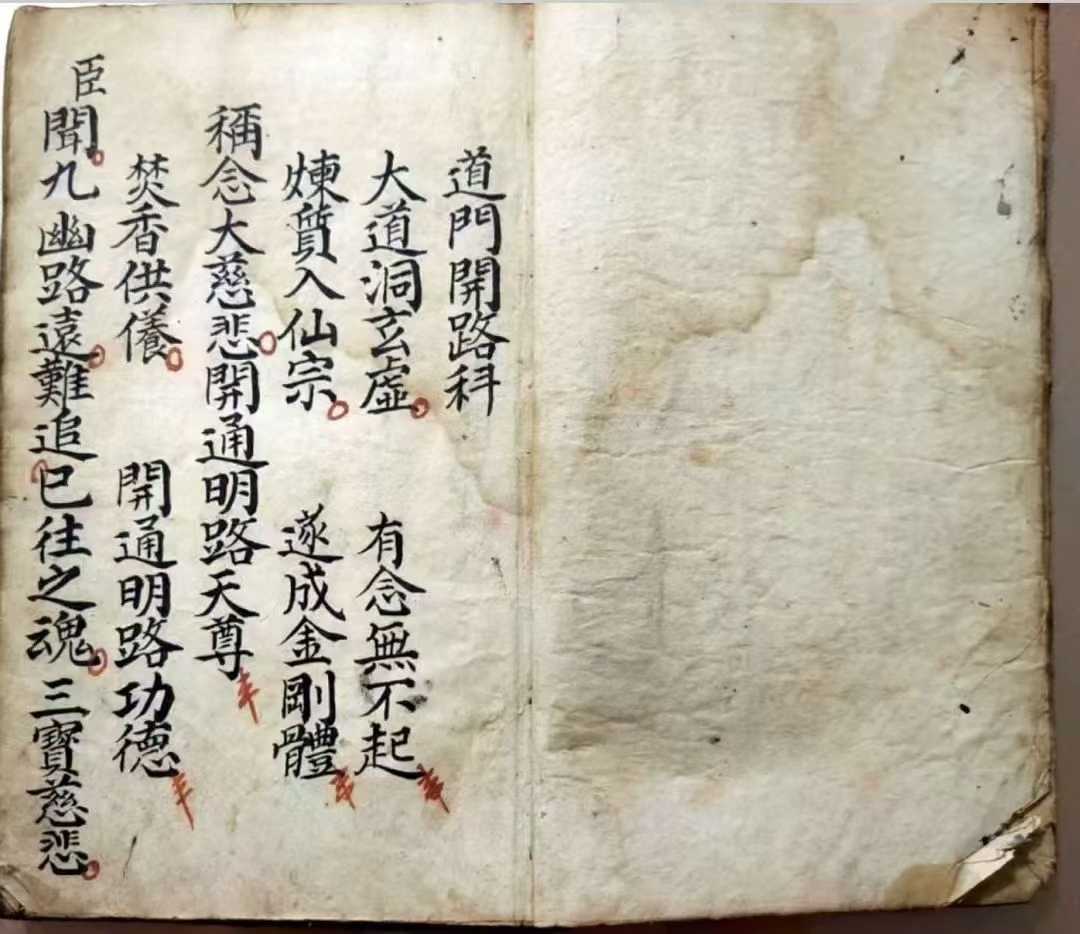 道門開路科
大道洞玄虛 有念無不起
煉質入仙宗 遂成金剛體
稱念大慈悲開通明路天尊
焚香供養 開通明路功德
臣聞九幽路遠難追已往之魂三寶慈悲